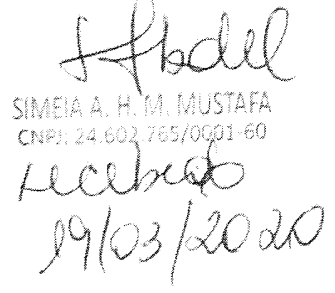 Abdel
SIMEIA A. H. M. MUSTAFA
CNPJ: 24.602.765/0001-60
recebido
19/03/2020